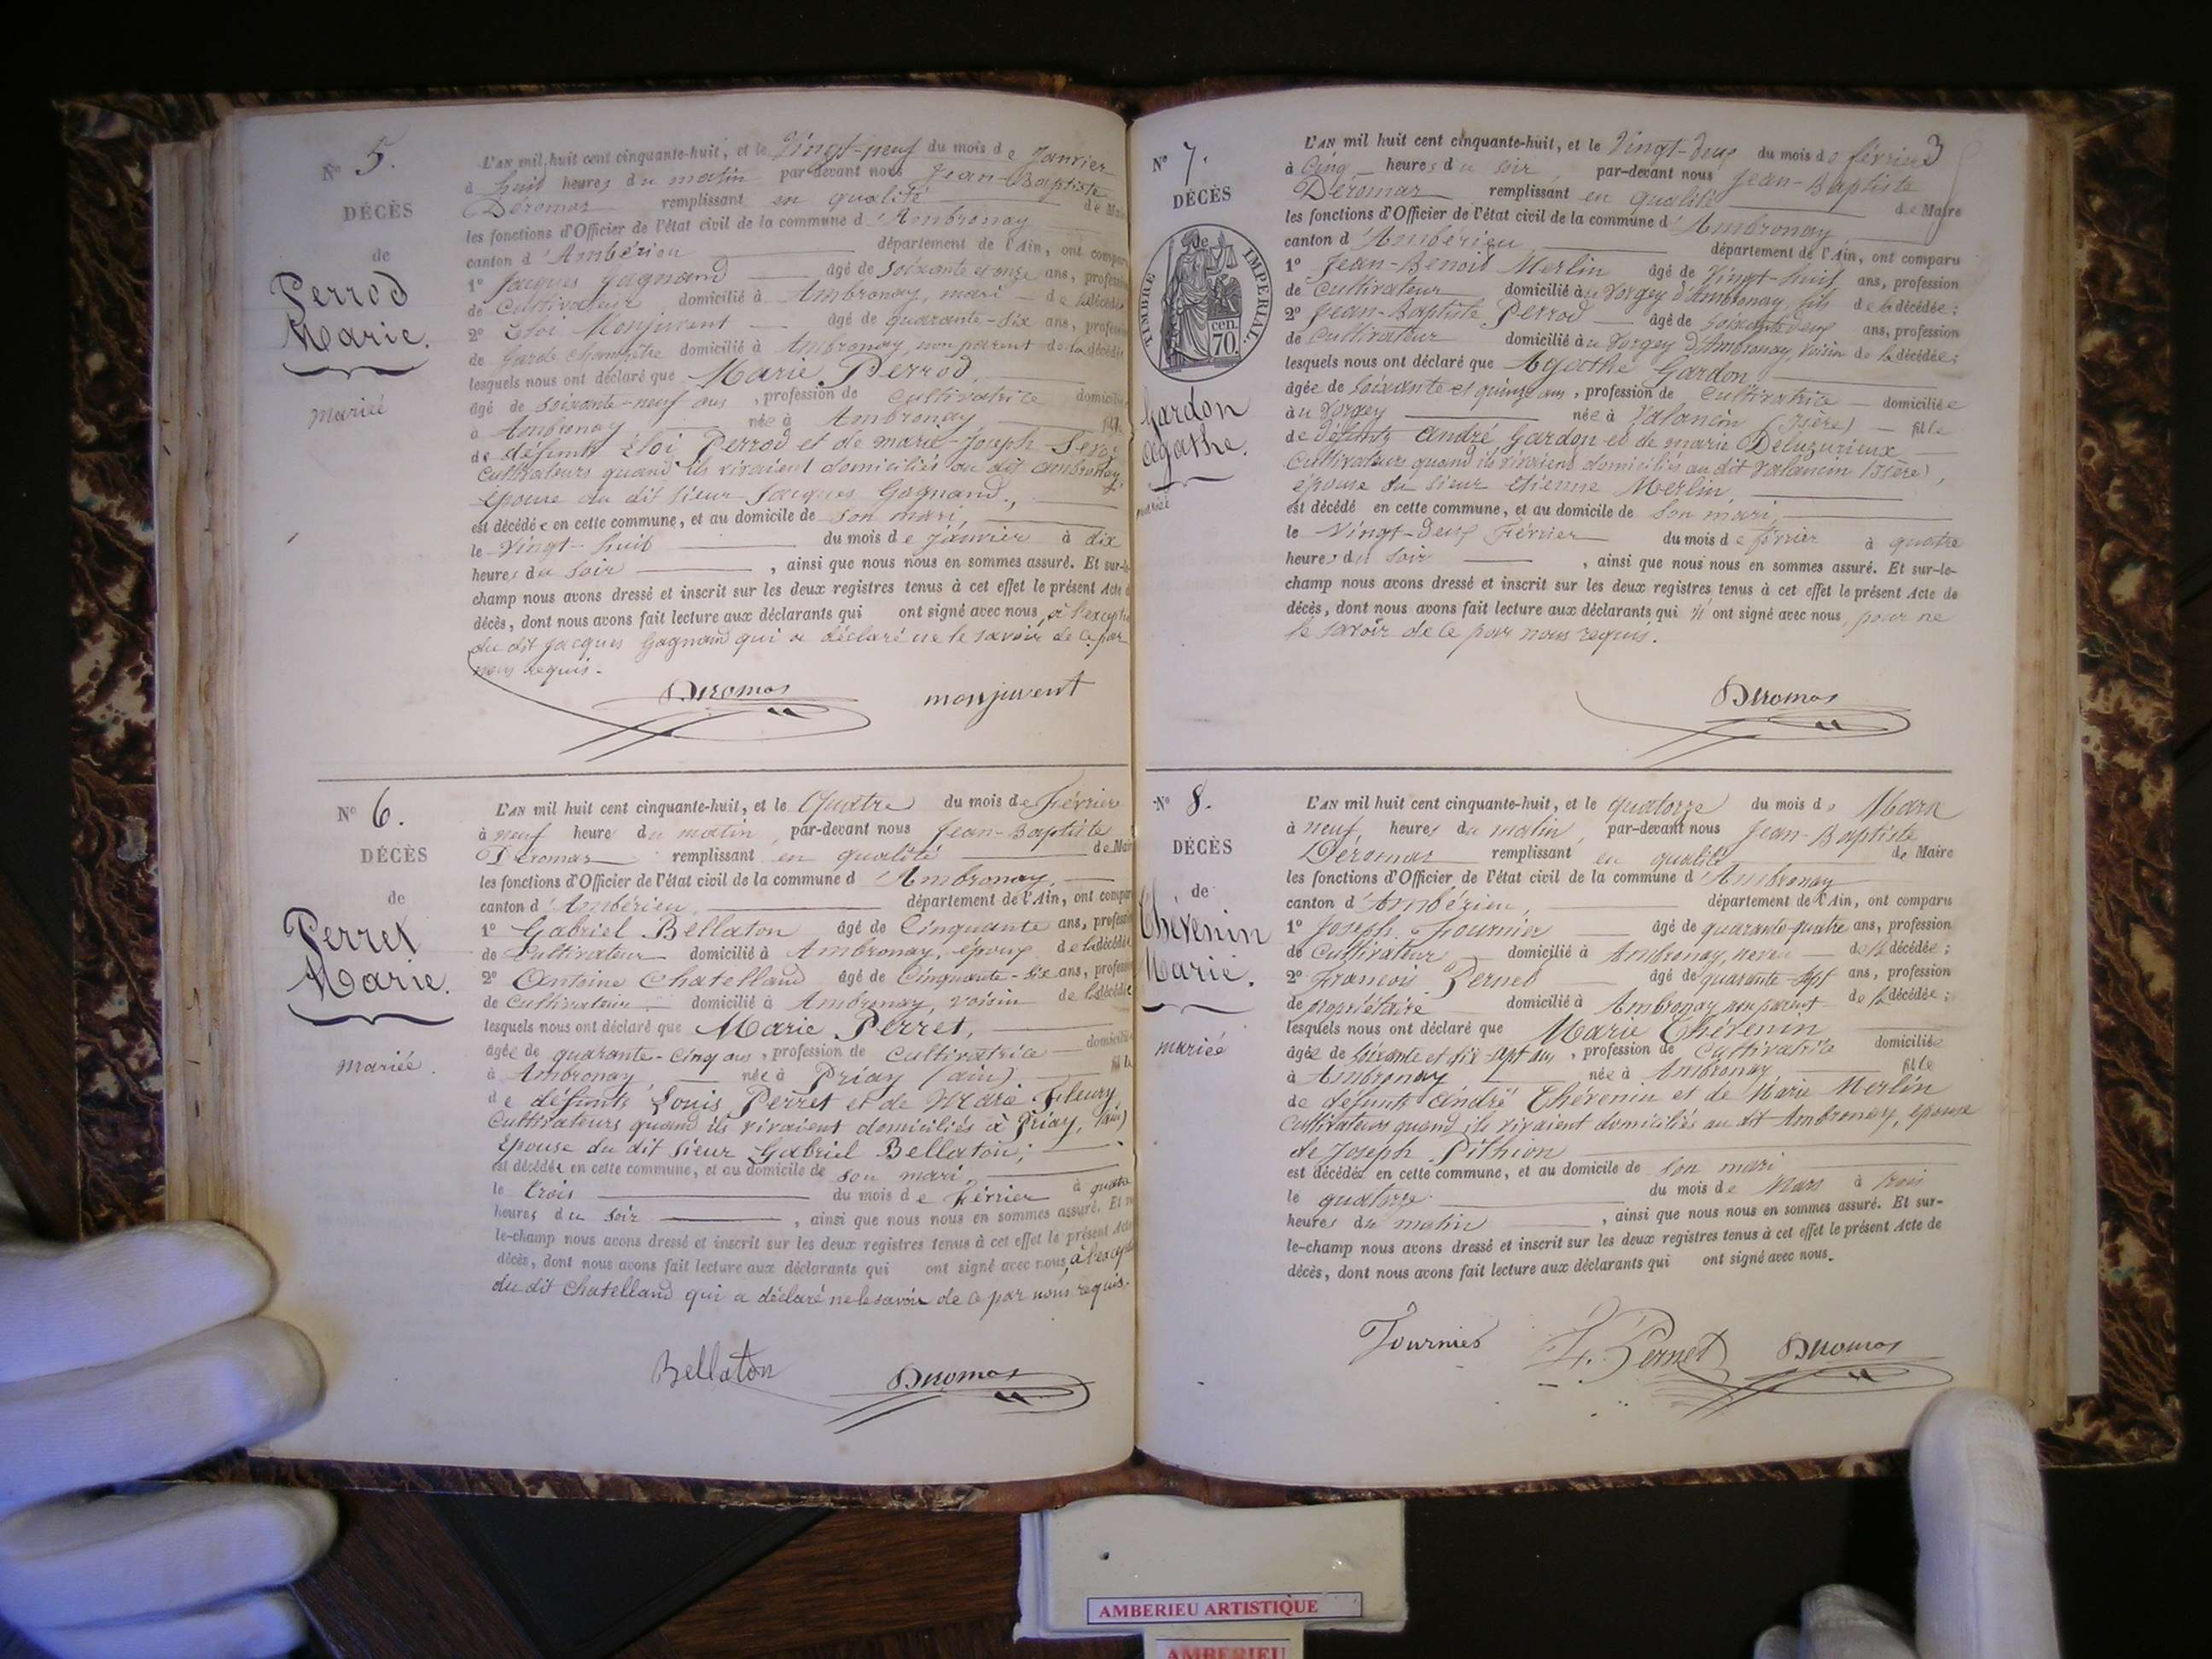 N° 5.
DÉCÈS
de
Perrod
Marie.
Mariée
L'AN mil huit cent cinquante-huit, et le Vingt-neuf du mois de Janvier
à huit heures du matin par-devant nous Jean-Baptiste
Déromas remplissant en qualité de Mai
les fonctions d'Officier de l'état civil de la commune d'Ambronay
canton d'Ambérieu département de l'Ain, ont compar
1° Jacques Gagnand âgé de Soixante et onze ans, profession
de Cultivateur domicilié à Ambronay, mari de la décédée
2° Eloi Monjuvent âgé de quarante-six ans, profession
de Garde Champêtre domicilié à Ambronay, non parent de la décédée
lesquels nous ont déclaré que Marie Perrod,
âgé de soixante-neuf ans, profession de Cultivatrice domicilié
à Ambronay née à Ambronay fille
de défunts Eloi Perrod et de Marie-Joseph
Cultivateurs quand ils vivaient domiciliés au dit Ambronay,
épouse du dit Sieur Jacques Gagnand.,
est décédée en cette commune, et au domicile de Son mari,
le Vingt-huit du mois de Janvier à dix
heures du Soir, ainsi que nous nous en sommes assuré. Et sur-le-
champ nous avons dressé et inscrit sur les deux registres tenus à cet effet le présent Acte d
décès, dont nous avons fait lecture aux déclarants qui ont signé avec nous, à l'excepti
du dit Jacques Gagnand qui a déclaré ne le savoir de ce par
nous requis.
Deromas monjuvent
N° 6.
DÉCÈS
de
Perret
Marie.
Mariée.
L'AN mil huit cent cinquante-huit, et le Quatre du mois de Février
à neuf heures du matin, par-devant nous Jean-Baptiste
Déromas remplissant en qualité de Mair
les fonctions d'Officier de l'état civil de la commune d'Ambronay,
canton d'Ambérieu, département de l'Ain, ont compar
1° Gabriel Bellaton âgé de Cinquante ans, profession
de Cultivateur domicilié à Ambronay, époux de la décédée
2° Antoine Chatelland âgé de Cinquante-six ans, profession
de Cultivateur domicilié à Ambronay, voisin de la décédée
lesquels nous ont déclaré que Marie Perret,
âgée de quarante-cinq ans, profession de Cultivatrice domicilié
à Ambronay, née à Priay (ain) fille
de défunts Louis Perret et de Marie Fleury
Cultivateurs quand ils vivaient domiciliés à Priay, (ain)
Épouse du dit Sieur Gabriel Bellaton;
est décédée en cette commune, et au domicile de son mari,
le trois du mois de Février à quatre
heures du Soir, ainsi que nous nous en sommes assuré. Et sur
le-champ nous avons dressé et inscrit sur les deux registres tenus à cet effet le présent Acte
décès, dont nous avons fait lecture aux déclarants qui ont signé avec nous, à l'excepti
du dit Chatelland qui a déclaré ne le savoir de ce par nous requis.
Bellaton Deromas
3
N° 7.
DÉCÈS
de
TIMBRE IMPERIAL
70 cen.
Gardon
Agathe.
mariée
L'AN mil huit cent cinquante-huit, et le Vingt-deux du mois de février
à Cinq heures du soir, par-devant nous Jean-Baptiste
Déromas remplissant en qualité de Maire
les fonctions d'Officier de l'état civil de la commune d'Ambronay
canton d'Ambérieu département de l'Ain, ont comparu
1° Jean-Benoit Merlin âgé de Vingt-huit ans, profession
de Cultivateur domicilié au Vorgey d'Ambronay, fils de la décédée;
2° Jean-Baptiste Perrod âgé de soixante deux ans, profession
de Cultivateur domicilié au Vorgey d'Ambronay, Voisin de la décédée;
lesquels nous ont déclaré que Agathe Gardon,
âgée de soixante et quinze ans, profession de Cultivatrice domiciliée
au Vorgey née à Valancin (Isère) fille
de défunts André Gardon et de Marie Deluzurieux
Cultivateurs quand ils vivaient domiciliés au dit Valancin (Isère),
épouse du sieur Etienne Merlin,
est décédé en cette commune, et au domicile de Son mari,
le Vingt-deux Février du mois de février à quatre
heures du Soir, ainsi que nous nous en sommes assuré. Et sur-le-
champ nous avons dressé et inscrit sur les deux registres tenus à cet effet le présent Acte de
décès, dont nous avons fait lecture aux déclarants qui n'ont signé avec nous, pour ne
le savoir de ce par nous requis.
Deromas
N° 8.
DÉCÈS
de
Thévenin
Marie.
mariée
L'AN mil huit cent cinquante-huit, et le quatorze du mois de Mars
à neuf, heures du matin, par-devant nous Jean-Baptiste
Déromas remplissant en qualité de Maire
les fonctions d'Officier de l'état civil de la commune d'Ambronay
canton d'Ambérieu, département de l'Ain, ont comparu
1° Joseph Fournier âgé de quarante-quatre ans, profession
de Cultivateur domicilié à Ambronay, neveu de la décédée;
2° Francois Pernet âgé de quarante-sept ans, profession
de propriétaire domicilié à Ambronay non parent de la décédée;
lesquels nous ont déclaré que Marie Thévenin
âgée de soixante et dix-sept ans, profession de Cultivatrice domiciliée
à Ambronay née à Ambronay, fille
de défunts André Thévenin et de Marie Merlin
Cultivateurs quand ils vivaient domiciliés au dit Ambronay, épouse
de Joseph Pithion
est décédée en cette commune, et au domicile de Son mari
le quatorze du mois de Mars à trois
heures du matin, ainsi que nous nous en sommes assuré. Et sur-
le-champ nous avons dressé et inscrit sur les deux registres tenus à cet effet le présent Acte de
décès, dont nous avons fait lecture aux déclarants qui ont signé avec nous.
Fournier F. Pernet Deromas
AMBERIEU ARTISTIQUE
AMBERIEU